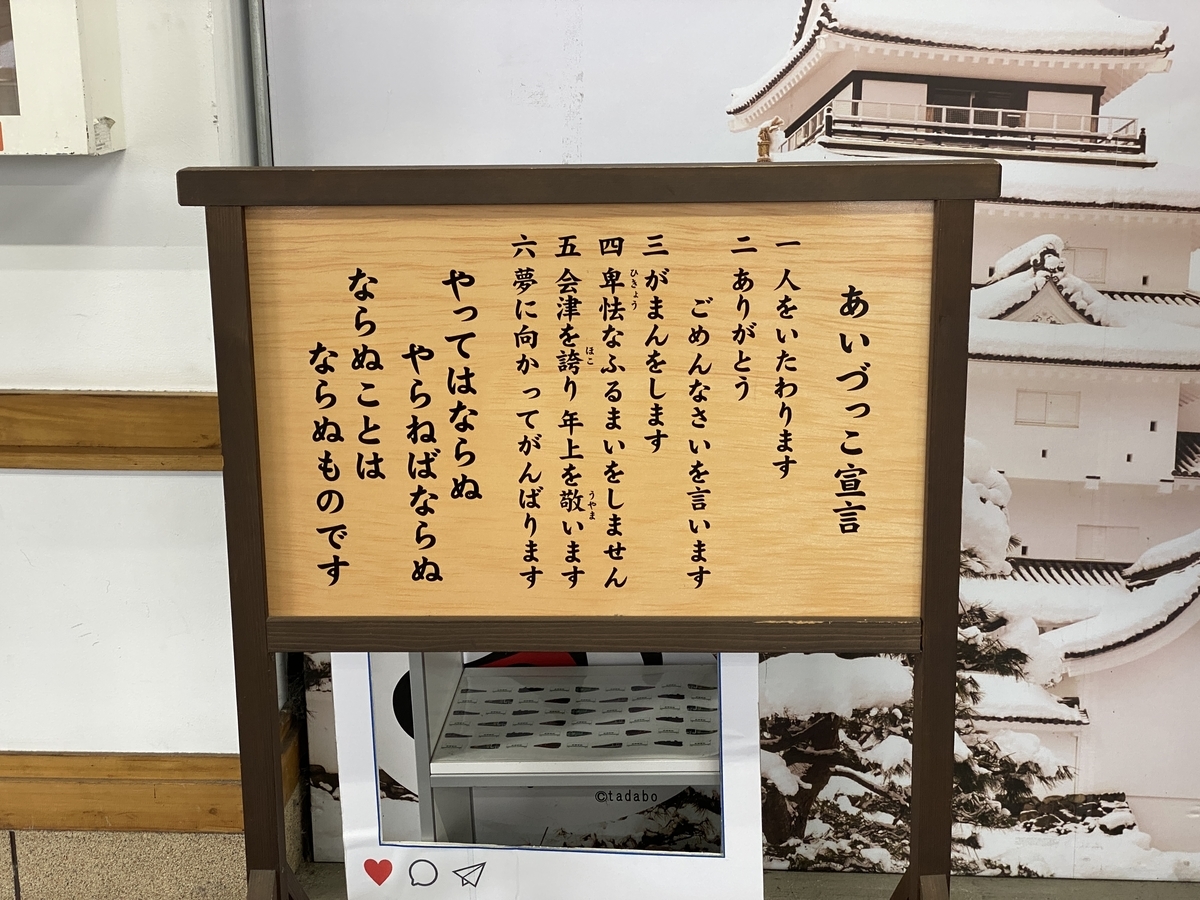 あいづっこ宣言
一 人をいたわります
二 ありがとう
ごめんなさいを言います
三 がまんをします
四 卑怯なふるまいをしません
ひきょう
五 会津を誇り年上を敬います
ほこ
うやま
六 夢に向かってがんばります
やってはならぬ
やらねばならぬ
ならぬことは
ならぬものです
©tadabo